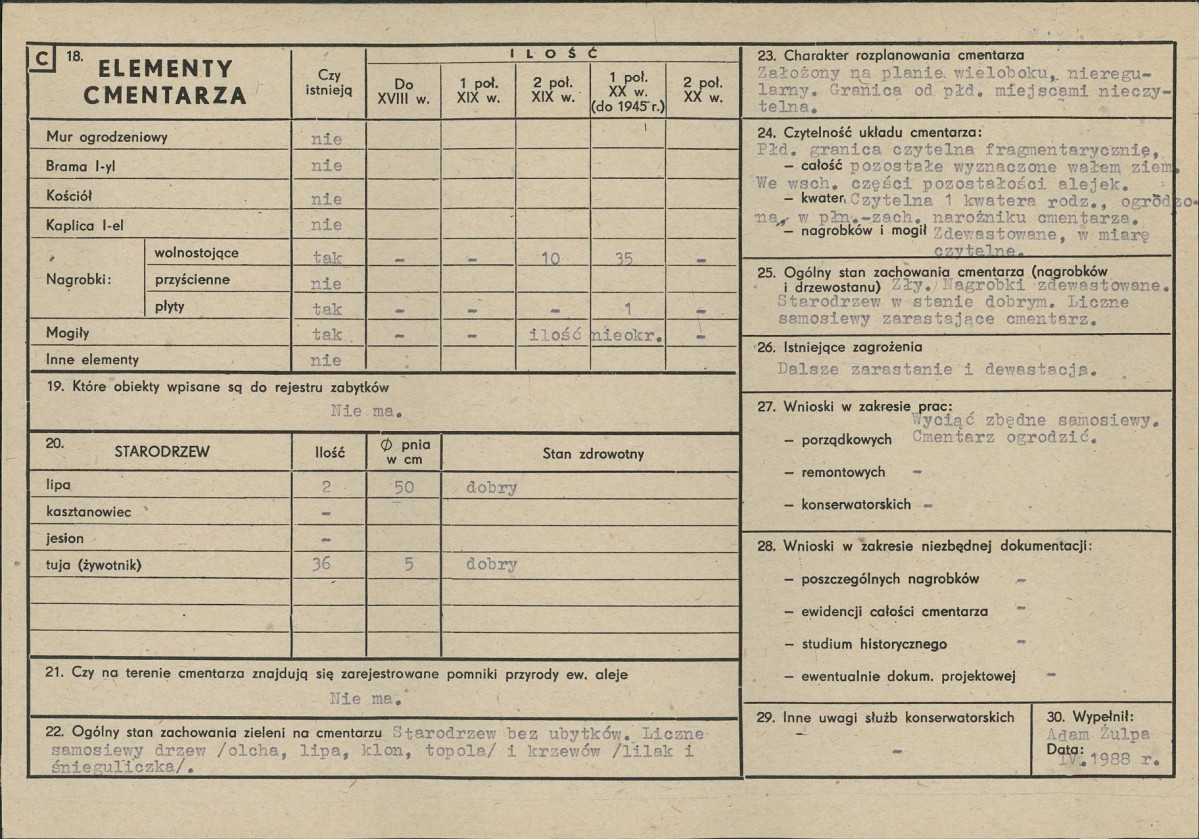 C 18. ELEMENTY CMENTARZA
Czy istnieją
ILOŚĆ
Do XVIII w.
1 poł. XIX w.
2 poł. XIX w.
1 poł. XX w. (do 1945 r.)
2 poł. XX w.
Mur ogrodzeniowy nie
Brama I-yl nie
Kościół nie
Kaplica I-el nie
Nagrobki:
wolnostojące tak - - 10 35 -
przyścienne nie
płyty tak - - - 1 -
Mogiły tak - - ilość nieokr. -
Inne elementy nie
19. Które obiekty wpisane są do rejestru zabytków
Nie ma.
20. STARODRZEW Ilość Ø pnia w cm Stan zdrowotny
lipa 2 50 dobry
kasztanowiec -
jesion -
tuja (żywotnik) 36 5 dobry
21. Czy na terenie cmentarza znajdują się zarejestrowane pomniki przyrody ew. aleje
Nie ma.
22. Ogólny stan zachowania zieleni na cmentarzu Starodrzew bez ubytków. Liczne
samosiewy drzew /olcha, lipa, klon, topola/ i krzewów /lilak i
śnieguliczka/.
23. Charakter rozplanowania cmentarza
Założony na planie wieloboku, nieregu-
larny. Granica od płd. miejscami nieczy-
telna.
24. Czytelność układu cmentarza:
Płd. granica czytelna fragmentarycznie,
- całość pozostałe wyznaczone wałem ziem.
We wsch. części pozostałości alejek.
- kwater Czytelna 1 kwatera rodz., ogrodzo-
na, w płn.-zach. narożniku cmentarza.
- nagrobków i mogił Zdewastowane, w miarę
czytelne.
25. Ogólny stan zachowania cmentarza (nagrobków
i drzewostanu) Zły. Nagrobki zdewastowane.
Starodrzew w stanie dobrym. Liczne
samosiewy zarastające cmentarz.
26. Istniejące zagrożenia
Dalsze zarastanie i dewastacja.
27. Wnioski w zakresie prac:
Wyciąć zbędne samosiewy.
- porządkowych Cmentarz ogrodzić.
- remontowych -
- konserwatorskich -
28. Wnioski w zakresie niezbędnej dokumentacji:
- poszczególnych nagrobków -
- ewidencji całości cmentarza -
- studium historycznego -
- ewentualnie dokum. projektowej -
29. Inne uwagi służb konserwatorskich
-
30. Wypełnił:
Adam Żulpa
Data:
IV.1988 r.